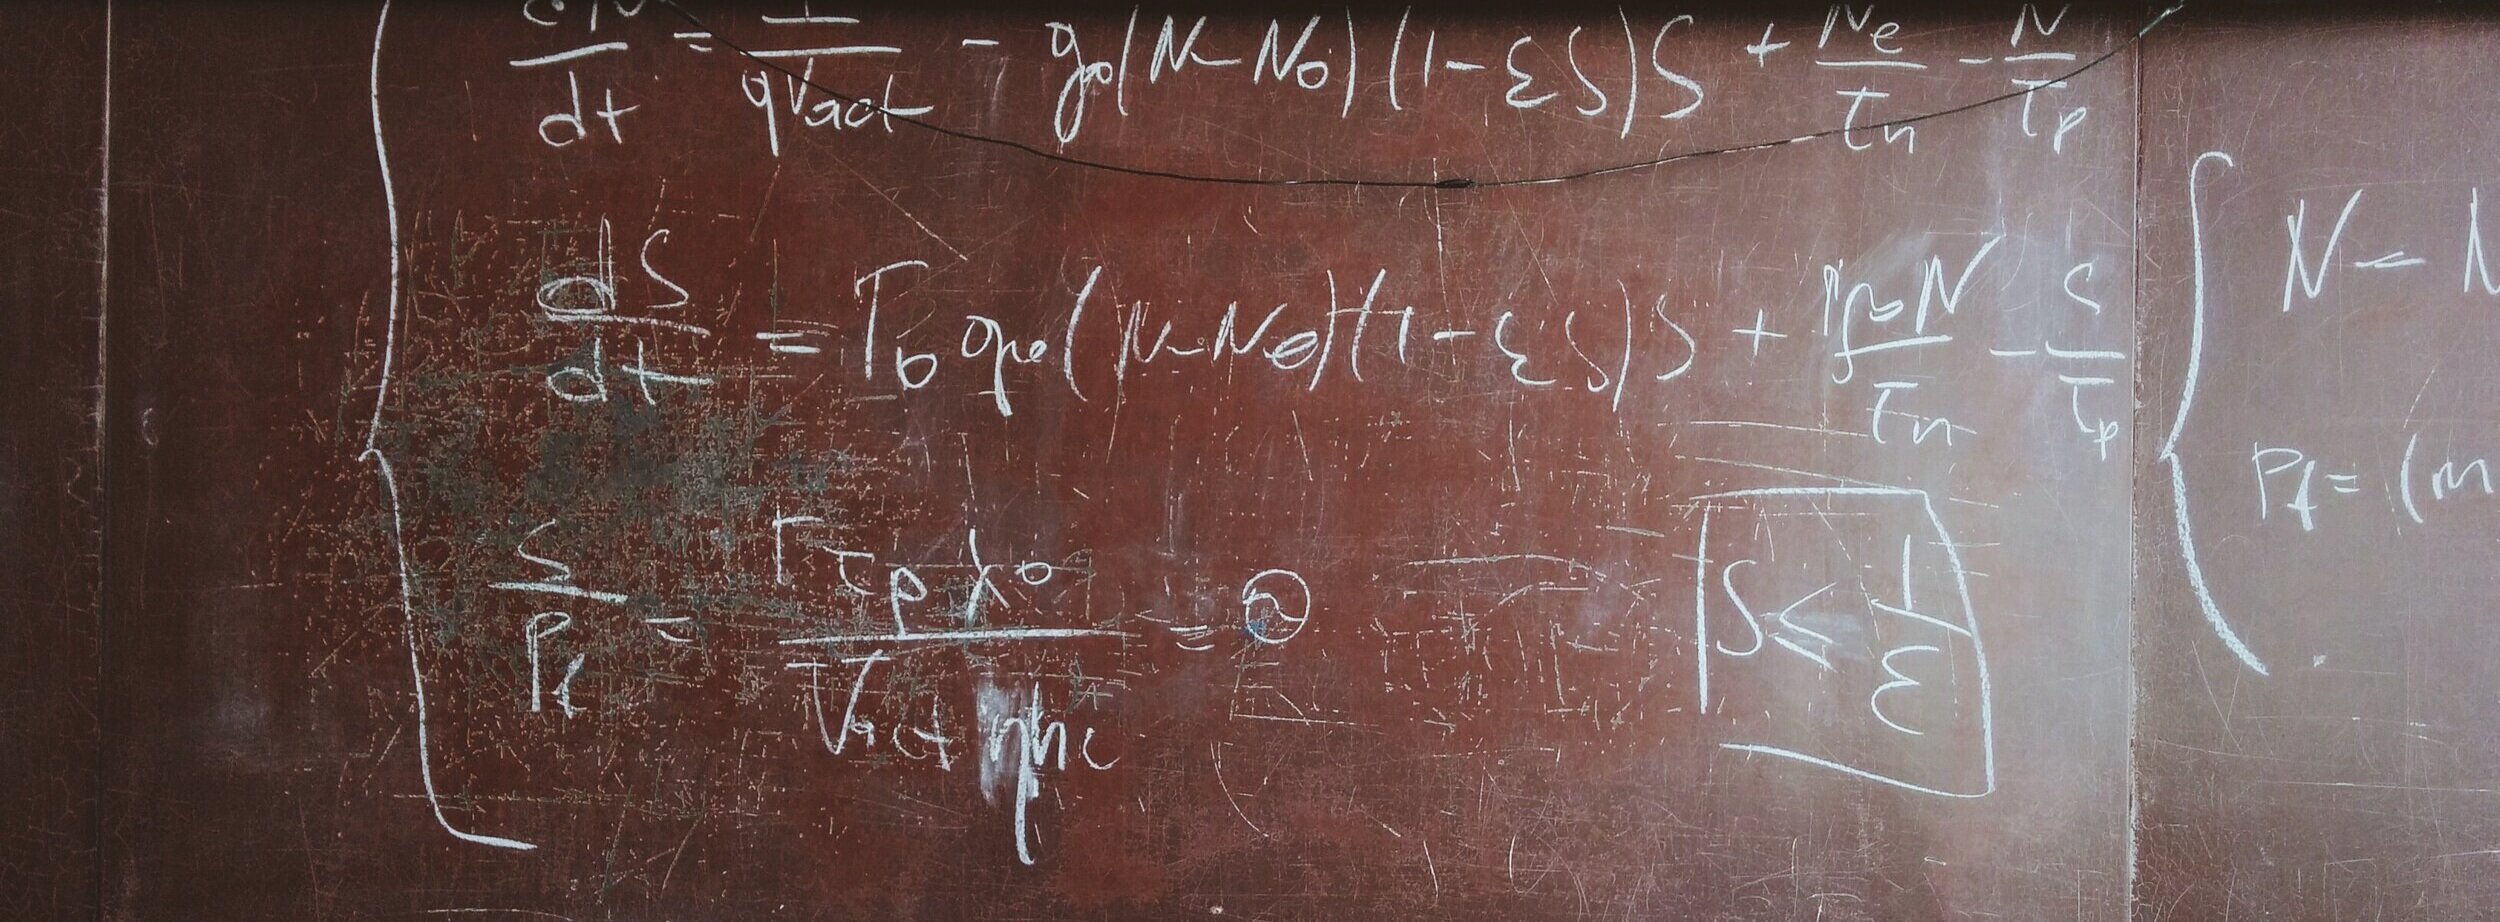 dN/dt = I/qVact - g₀(N-N₀)(1-εS)S + Ne/τn - N/τp
dS/dt = Γ₀ g₀(N-N₀)(1-εS)S + N/τn - S/τp
S/Pf = Γτpλ₀/Vact ηhc =
S ≤ 1/ε
N = N
Pf = (m